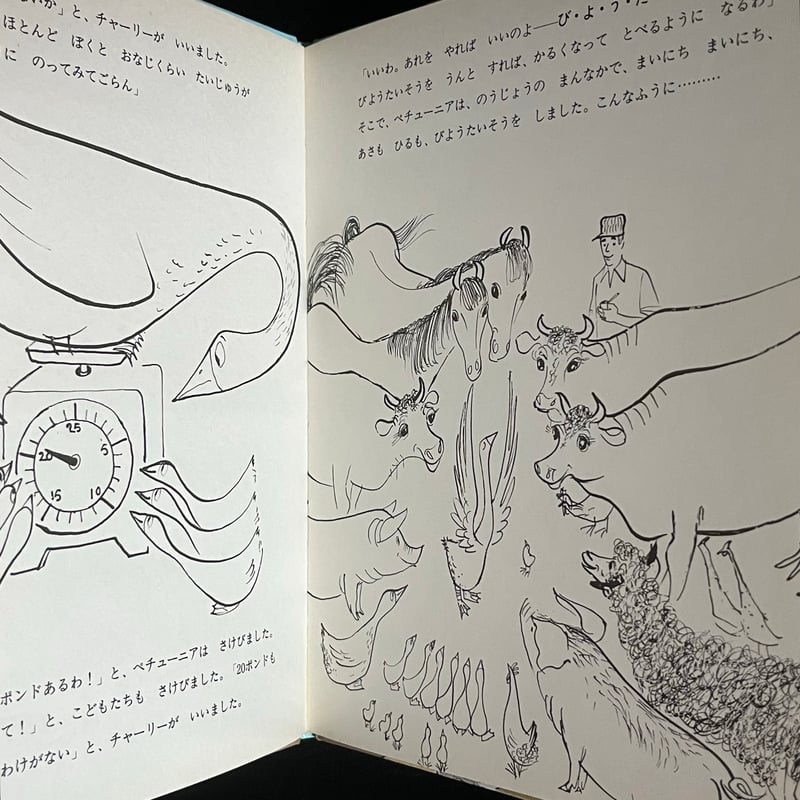 と、チャーリーが いいました。
ほとんど ぼくと おなじくらい たいじゅうが
に のってみてごらん」
25
20
5
15
10
ポンドあるわ！」と、ペチューニアは さけびました。
て！」と、こどもたちも さけびました。「20ポンドも
わけがない」と、チャーリーが いいました。
「いいわ。あれを やれば いいのよ——び・よ・う・た
びようたいそうを うんと すれば、かるくなって とべるように なるわ」
そこで、ペチューニアは、のうじょうの まんなかで、まいにち まいにち、
あさも ひるも、びようたいそうを しました。こんなふうに………